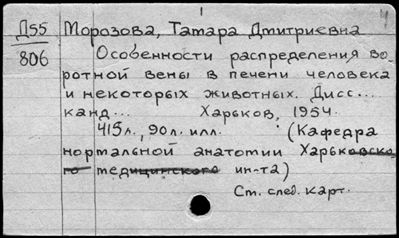 Д55 Морозова, Тамара Дмитриевна
806 Особенности распределения во-
ротной вены в печени человека
и некоторых животных. Дисс...
канд... Харьков, 1954.
415л., 90л. илл. (Кафедра
нормальной анатомии Харьковско-
го медицинского ин-та)
Ст. след. карт.